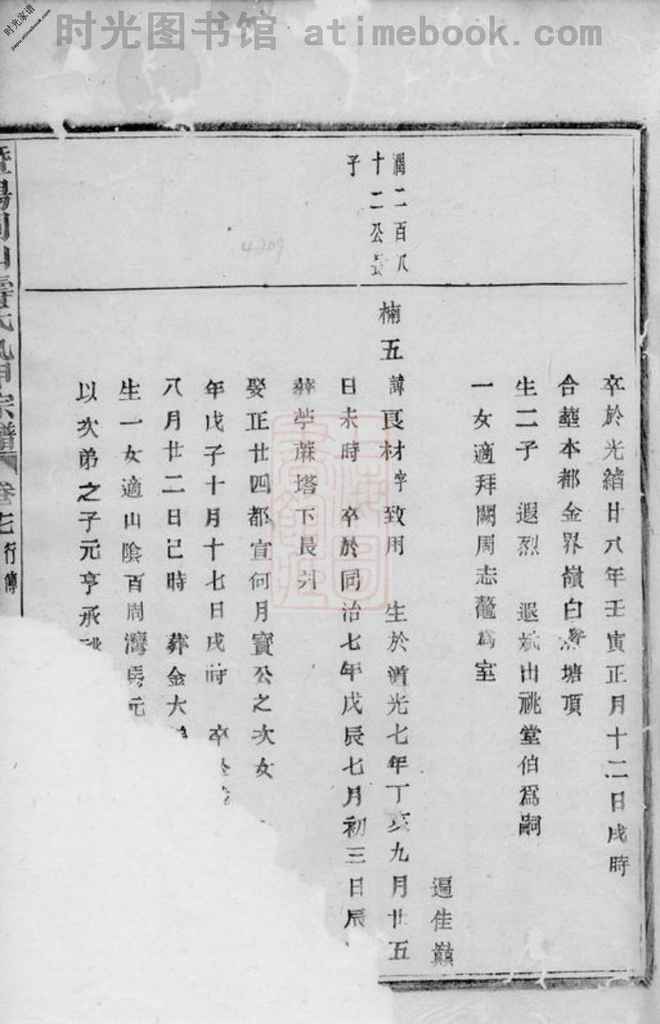 时光图书馆 atimebook.com
时光家谱
卒於光緒廿八年壬寅正月十二日戌時
合塟本都金界嶺白塘頂
生二子 遐烈 遐出祧堂伯爲嗣
一女適拜闗周志鰲爲室
遍佳巔
潤二百八
十二公長
子
楠五 諱良材字致用 生於道光七年丁亥九月廿五
日未時 卒於同治七年戊辰七月初三日辰
葬苧蔴塔下長
娶正廿四都宣何月寶公之次女
年戊子十月十七日戌時 卒
八月廿二日己時 葬金大
生一女適山陰百周灣元
以次弟之子元亨承祧
暨陽氏宗譜 卷七 行傳